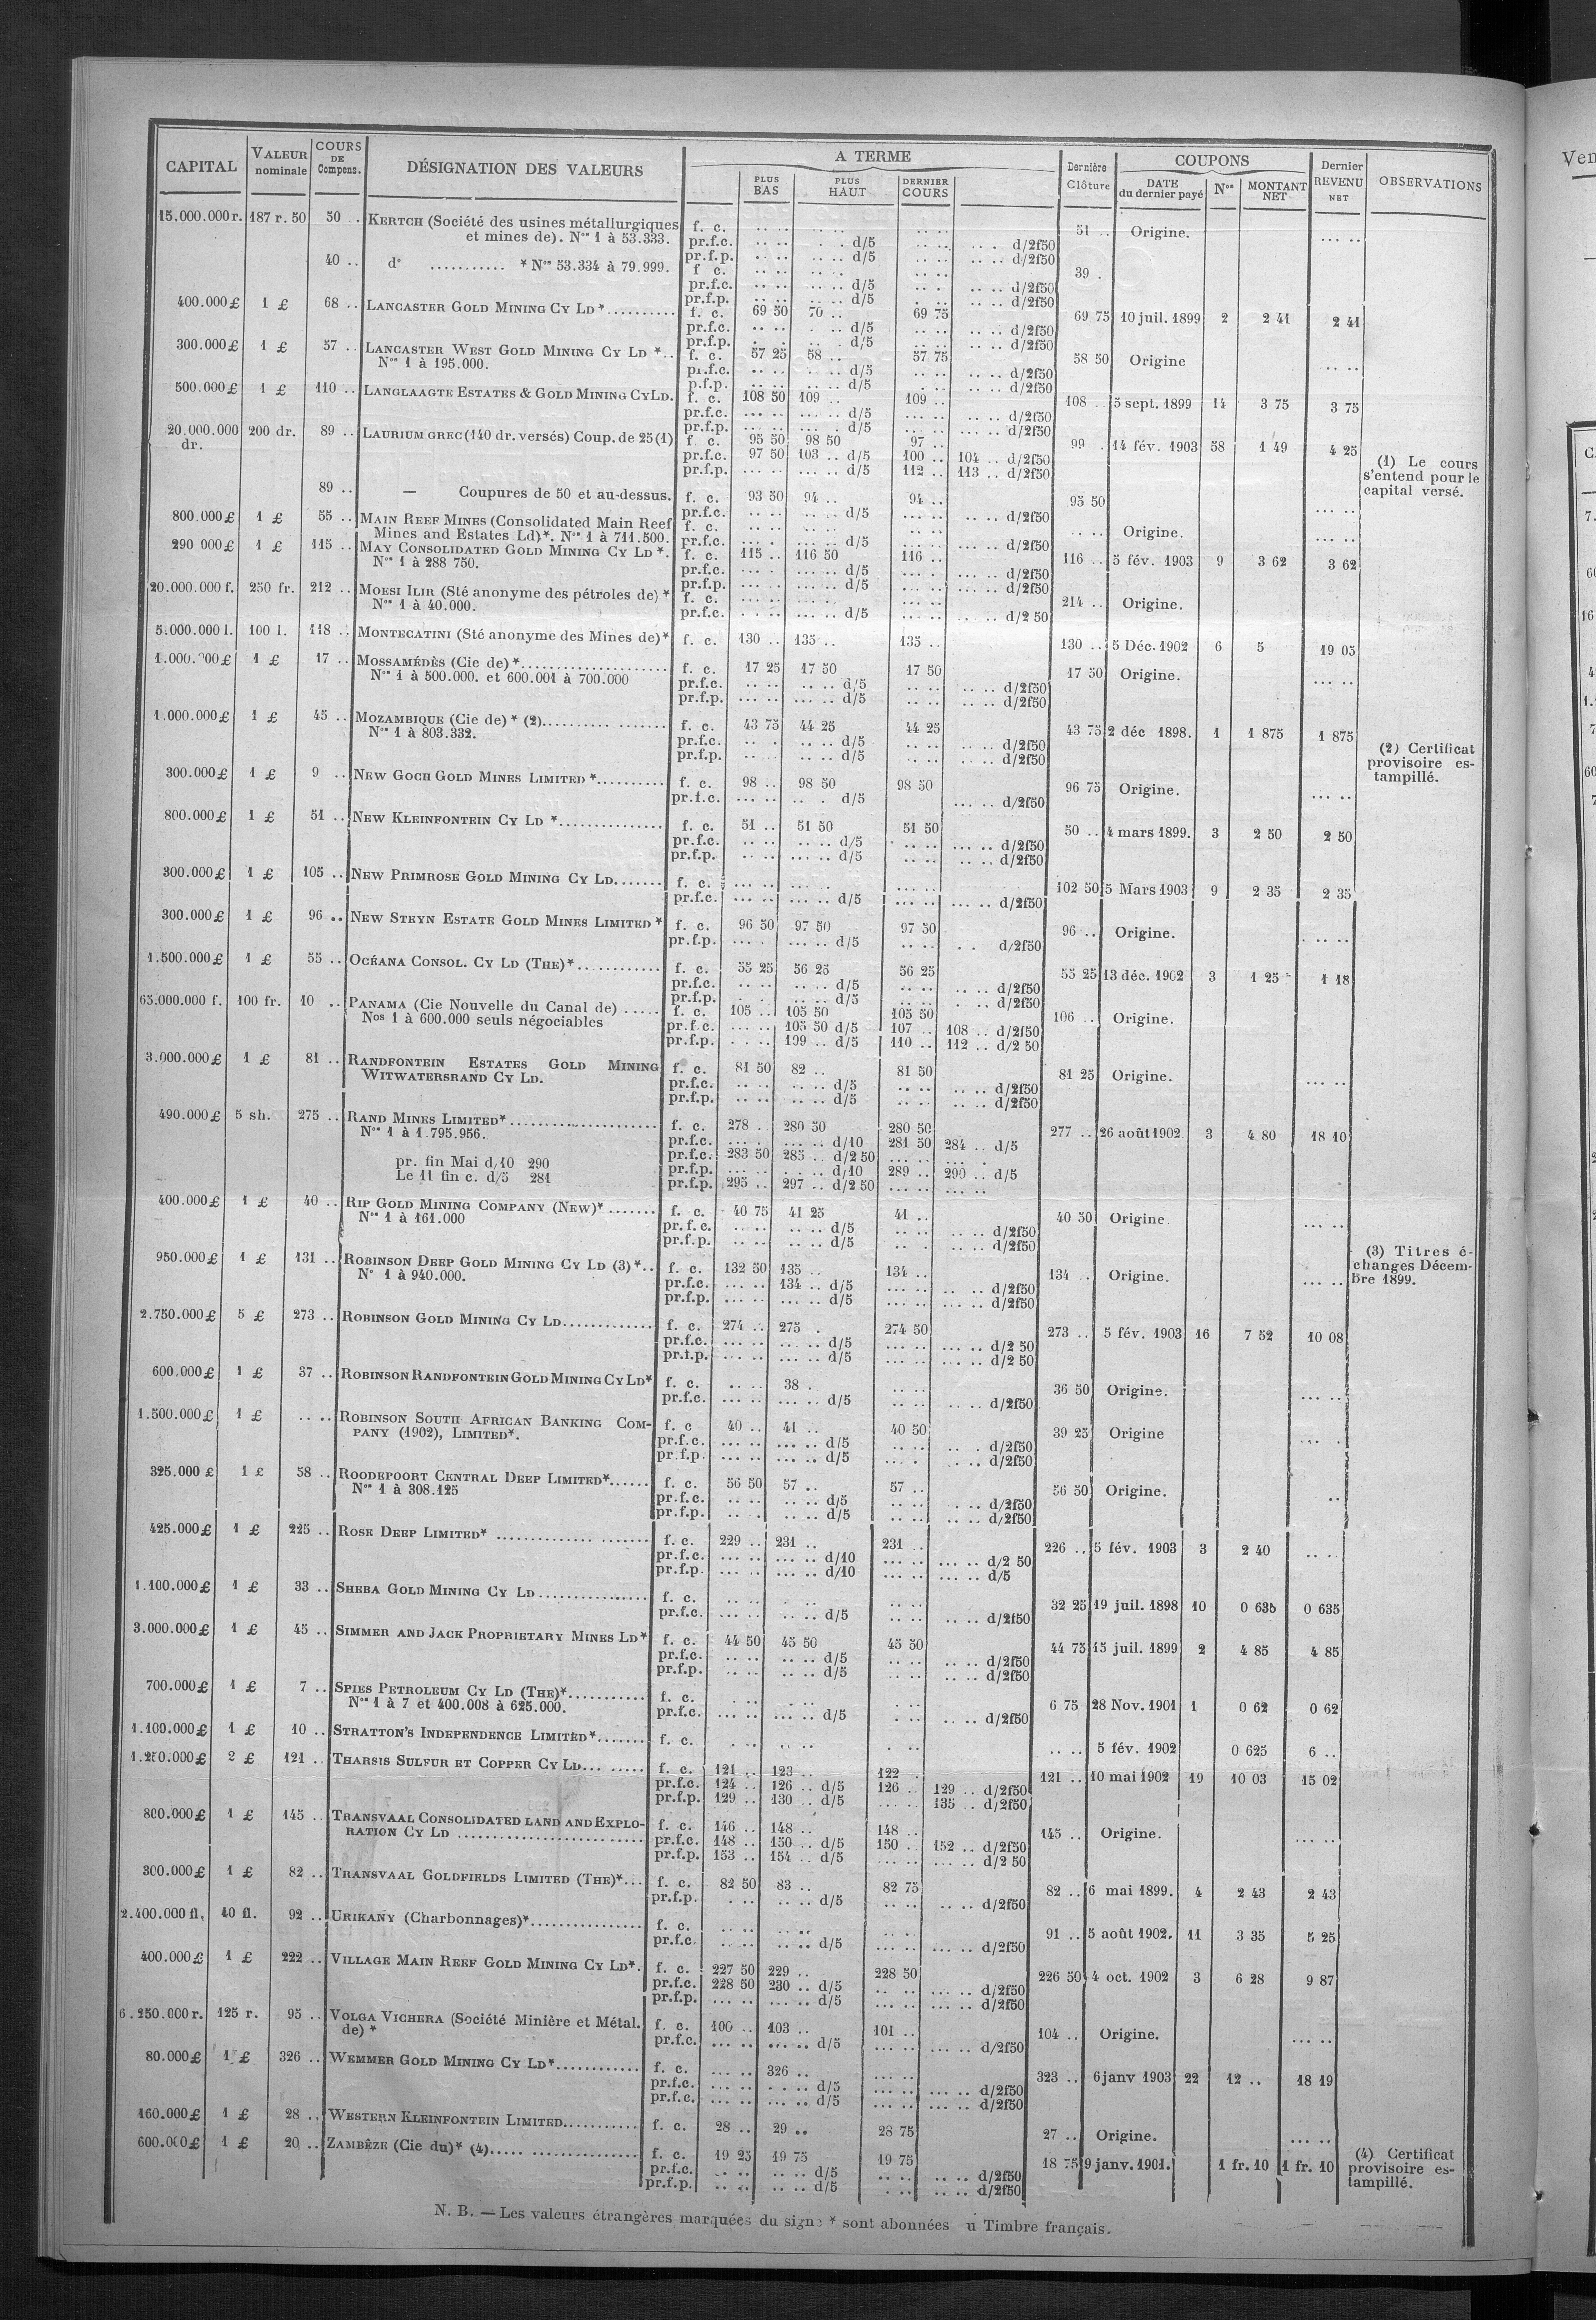 CAPITAL VALEUR nominale COURS DE Compens. DÉSIGNATION DES VALEURS A TERME PLUS BAS PLUS HAUT DERNIER COURS Dernière Clôture COUPONS DATE du dernier payé Nos MONTANT NET Dernier REVENU NET OBSERVATIONS
15.000.000 r. 187 r. 50 50 .. KERTCH (Société des usines métallurgiques f. c. .. .. .. .. .. .. 51 .. Origine. ... ..
et mines de). Nos 1 à 53.333. pr.f.c. .. .. . . d/5 .. .. .. . d/2f50
pr.f.p. .. .. .. .. d/5 .. .. .. .. d/2f50
40 .. do ........... * Nos 53.334 à 79.999. f c. .. .. .. .. .. .. 39 .
pr.f.c. .. .. .. .. d/5 .. . .. .. d/2f50
pr.f.p. .. .. .. .. d/5 . .. .. .. d/2f50
400.000 £ 1 £ 68 .. LANCASTER GOLD MINING CY LD * .......... f. c. 69 50 70 .. 69 75 69 75 10 juil. 1899 2 2 41 2 41
pr.f.c. .. .. . .. d/5 .. .. .. .. d/2f50
pr.f.p. . . .. . d/5 .. .. .. .. d/2f50
300.000 £ 1 £ 57 .. LANCASTER WEST GOLD MINING CY LD *.. f. c. 57 25 58 .. 57 75 58 50 Origine .. ..
Nos 1 à 195.000. pr.f.c. .. .. . .. d/5 .. .. .. .. d/2f50
p.f.p. .. .. .. .. d/5 . .. .. .. d/2f50
500.000 £ 1 £ 110 .. LANGLAAGTE ESTATES & GOLD MINING CY LD. f. c. 108 50 109 .. 109 .. 108 .. 5 sept. 1899 14 3 75 3 75
pr.f.c. ... .. ... .. d/5 ... .. .. .. d/2f50
pr.f.p. ... .. ... . d/5 ... .. ... .. d/2f50
20.000.000 dr. 200 dr. 89 .. LAURIUM GREC (140 dr. versés) Coup. de 25 (1) f. c. 95 50 98 50 97 .. 99 . 14 fév. 1903 58 1 49 4 25
pr.f.c. 97 50 103 .. d/5 100 .. 104 .. d/2f50 (1) Le cours
pr.f.p. ... .. ... .. d/5 112 .. 113 .. d/2f50 s'entend pour le
89 .. — Coupures de 50 et au-dessus. f. c. 93 50 94 .. 94 .. 93 50 capital versé.
pr.f.c. .. .. .. .. d/5 ... .. .. .. d/2f50 ... ..
800.000 £ 1 £ 55 .. MAIN REEF MINES (Consolidated Main Reef f. c. .. .. .. .. .. .. .. .. Origine. ... ..
Mines and Estates Ld)*. Nos 1 à 711.500. pr.f.c. ... .. ... . d/5 .. .. ... .. d/2f50
290 000 £ 1 £ 115 .. MAY CONSOLIDATED GOLD MINING CY LD *. f. c. 115 .. 116 50 116 .. 116 .. 5 fév. 1903 9 3 62 3 62
Nos 1 à 288 750. pr.f.c. ... . ... .. d/5 ... . ... .. d/2f50
pr.f.p. ... . ... .. d/5 ... .. ... .. d/2f50
20.000.000 f. 250 fr. 212 .. MOESI ILIR (Sté anonyme des pétroles de) * f. c. ... .. ... .. ... .. 214 .. Origine.
Nos 1 à 40.000. pr.f.c. . .. .. ... .. d/5 ... .. d/2 50
5.000.000 l. 100 l. 118 .. MONTECATINI (Sté anonyme des Mines de)* f. c. 130 .. 135 .. 135 .. 130 .. 5 Déc. 1902 6 5 19 05
1.000.000 £ 1 £ 17 .. MOSSAMÉDÈS (Cie de) *................... f. c. 17 25 17 50 17 50 17 50 Origine. ... ..
Nos 1 à 500.000. et 600.001 à 700.000 pr.f.c. .. .. .. .. d/5 .. .. .. .. d/2f50
pr.f.p. ... .. ... .. d/5 .. .. .. .. d/2f50
1.000.000 £ 1 £ 45 .. MOZAMBIQUE (Cie de) * (2)......... ....... f. c. 43 75 44 25 44 25 43 75 2 déc 1898. 1 1 875 1 875
Nos 1 à 803.332. pr.f.c. .. . .. .. d/5 .. .. .. .. d/2f50 (2) Certificat
pr.f.p. .. .. .. .. d/5 .. . .. .. d/2f50 provisoire es-
300.000 £ 1 £ 9 .. NEW GOCH GOLD MINES LIMITED *......... f. c. 98 .. 98 50 98 50 96 75 Origine. ... .. tampillé.
pr.f.c. ... .. .. . d/5 ... .. d/2f50
800.000 £ 1 £ 51 .. NEW KLEINFONTEIN CY LD *.............. f. c. 51 .. 51 50 51 50 50 .. 4 mars 1899. 3 2 50 2 50
pr.f.c. .. .. .. .. d/5 . .. ... .. d/2f50
pr.f.p. .. .. ... .. d/5 .. .. .. .. d/2f50
300.000 £ 1 £ 105 .. NEW PRIMROSE GOLD MINING CY LD....... f. c. ... .. ... . ... .. 102 50 5 Mars 1903 9 2 35 2 35
pr.f.c. ... .. ... .. d/5 ... .. ... .. d/2f50
300.000 £ 1 £ 96 .. NEW STEYN ESTATE GOLD MINES LIMITED * f. c. 96 50 97 50 97 50 96 .. Origine. ... ..
pr.f.p. ... . ... .. d/5 .. .. . . d/2f50
1.500.000 £ 1 £ 55 .. OCÉANA CONSOL. CY LD (THE) *............ f. c. 55 25 56 25 56 25 55 25 13 déc. 1902 3 1 25 1 18
pr.f.c. .. .. .. .. d/5 .. .. .. .. d/2f50
pr.f.p. . . .. .. d/5 .. .. . .. d/2f50
65.000.000 f. 100 fr. 10 .. PANAMA (Cie Nouvelle du Canal de) ..... f. c. 105 .. 105 50 105 50 106 .. Origine.
Nos 1 à 600.000 seuls négociables pr.f.c. ... .. 105 50 d/5 107 .. 108 .. d/2f50
pr.f.p. . . .. 109 .. d/5 110 .. 112 .. d/2 50
3.000.000 £ 1 £ 81 .. RANDFONTEIN ESTATES GOLD MINING f. c. 81 50 82 .. 81 50 81 25 Origine. ... ..
WITWATERSRAND CY LD. pr.f.c. .. .. .. .. d/5 .. .. .. .. d/2f50
pr.f.p. .. .. .. .. d/5 .. .. .. .. d/2f50
490.000 £ 5 sh. 275 .. RAND MINES LIMITED*.................... f. c. 278 . 280 50 280 50 277 .. 26 août 1902 3 4 80 18 10
Nos 1 à 1.795.956. pr.f.c. ... . ... .. d/10 281 50 284 .. d/5
pr. fin Mai d/10 290 pr.f.c. 283 50 285 .. d/2 50 ... .. ... .
Le 11 fin c. d/5 281 pr.f.p. ... .. . . .. d/10 289 .. 290 .. d/5
pr.f.p. 295 .. 297 .. d/2 50 ... .. ... ..
400.000 £ 1 £ 40 .. RIP GOLD MINING COMPANY (NEW)* ....... f. c. 40 75 41 25 41 .. 40 50 Origine. ... ..
Nos 1 à 161.000 pr.f.c. .. .. .. .. d/5 d/2f50
pr.f.p. .. .. .. .. d/5 .. . .. .. d/2f50
950.000 £ 1 £ 131 .. ROBINSON DEEP GOLD MINING CY LD (3)*.. f. c. 132 50 135 .. 134 .. 134 .. Origine. ... .. (3) Titres é-
No 1 à 940.000. pr.f.c. ... .. 134 .. d/5 ... .. .. .. d/2f50 changes Décem-
pr.f.p. ... .. ... .. d/5 ... .. ... .. d/2f50 bre 1899.
2.750.000 £ 5 £ 273 .. ROBINSON GOLD MINING CY LD............ f. c. 274 .. 275 . 274 50 273 .. 5 fév. 1903 16 7 52 10 08
pr.f.c. ... .. ... .. d/5 ... .. ... .. d/2 50
pr.f.p. ... .. ... .. d/5 ... .. ... .. d/2 50
600.000 £ 1 £ 37 .. ROBINSON RANDFONTEIN GOLD MINING CY LD* f. c. .. . 38 . .. .. 36 50 Origine. ... ..
pr.f.c. ... .. ... .. d/5 d/2f50
1.500.000 £ 1 £ .. .. ROBINSON SOUTH AFRICAN BANKING COM- f. c 40 .. 41 .. 40 50 39 25 Origine ... .
PANY (1902), LIMITED*. pr.f.c. ... .. ... .. d/5 .. .. .. . d/2f50
pr.f.p. ... .. ... .. d/5 ... . .. .. d/2f50
325.000 £ 1 £ 58 .. ROODEPOORT CENTRAL DEEP LIMITED*...... f. c. 56 50 57 .. 57 .. 56 50 Origine. ..
Nos 1 à 308.125 pr.f.c. .. .. .. .. d/5 .. .. . .. d/2f50
pr.f.p. .. .. .. .. d/5 .. .. .. .. d/2f50
425.000 £ 1 £ 225 .. ROSE DEEP LIMITED* ............. ....... f. c. 229 .. 231 .. 231 .. 226 .. 5 fév. 1903 3 2 40 .. ..
pr.f.c. ... .. ... .. d/10 ... .. ... .. d/2 50
pr.f.p. ... .. ... .. d/10 ... .. ... .. d/5
1.100.000 £ 1 £ 33 .. SHEBA GOLD MINING CY LD ............... f. c. .. .. .. . .. .. 32 25 19 juil. 1898 10 0 635 0 635
pr.f.c. ... .. .. .. d/5 .. .. .. .. d/2f50
3.000.000 £ 1 £ 45 .. SIMMER AND JACK PROPRIETARY MINES LD* f. c. 44 50 45 50 45 50 44 75 15 juil. 1899 2 4 85 4 85
pr.f.c. .. .. .. .. d/5 .. .. .. .. d/2f50
pr.f.p. .. .. .. .. d/5 .. .. .. .. d/2f50
700.000 £ 1 £ 7 .. SPIES PETROLEUM CY LD (THE)*........... f. c. . .. .. .. . .. 6 75 28 Nov. 1901 1 0 62 0 62
Nos 1 à 7 et 400.008 à 625.000. pr.f.c. ... .. ... .. d/5 .. .. .. d/2f50
1.100.000 £ 1 £ 10 .. STRATTON'S INDEPENDENCE LIMITED*....... f. c. . .. .. .. . .. .. .. 5 fév. 1902 0 625 6 ..
1.250.000 £ 2 £ 121 .. THARSIS SULFUR ET COPPER CY LD... ..... f. c. 121 .. 123 .. 122 . 121 .. 10 mai 1902 19 10 03 15 02
pr.f.c. 124 .. 126 .. d/5 126 .. 129 .. d/2f50
pr.f.p. 129 .. 130 .. d/5 ... .. 135 .. d/2f50
800.000 £ 1 £ 145 .. TRANSVAAL CONSOLIDATED LAND AND EXPLO- f. c. 146 .. 148 .. 148 .. 145 .. Origine. ... ..
RATION CY LD .......................... pr.f.c. 148 .. 150 .. d/5 150 .. 152 .. d/2f50
pr.f.p. 153 .. 154 .. d/5 ... .. ... .. d/2 50
300.000 £ 1 £ 82 .. TRANSVAAL GOLDFIELDS LIMITED (THE)*... f. c. 82 50 83 .. 82 75 82 .. 6 mai 1899. 4 2 43 2 43
pr.f.p. . .. .. .. d/5 .. .. .. d/2f50
2.400.000 fl. 40 fl. 92 .. URIKANY (Charbonnages)*................ f. c. .. .. .. .. .. .. 91 .. 5 août 1902. 11 3 35 5 25
pr.f.c. .. .. .. .. d/5 ... .. ... .. d/2f50
400.000 £ 1 £ 222 .. VILLAGE MAIN REEF GOLD MINING CY LD*. f. c. 227 50 229 .. 228 50 226 50 4 oct. 1902 3 6 28 9 87
pr.f.c. 228 50 230 .. d/5 .. .. ... .. d/2f50
pr.f.p. ... .. ... .. d/5 ... .. ... .. d/2f50
6.250.000 r. 125 r. 95 .. VOLGA VICHERA (Société Minière et Métal. f. c. 100 .. 103 .. 101 .. 104 .. Origine. ... ..
de) * pr.f.c. ... .. ... .. d/5 ... .. ... .. d/2f50
80.000 £ 1 £ 326 .. WEMMER GOLD MINING CY LD*............ f. c. ... .. 326 .. ... .. 323 .. 6 janv 1903 22 12 .. 18 19
pr.f.c. ... .. . .. .. d/5 ... .. ... .. d/2f50
pr.f.c. ... .. ... .. d/5 ... .. ... .. d/2f50
160.000 £ 1 £ 28 .. WESTERN KLEINFONTEIN LIMITED........... f. c. 28 .. 29 .. 28 75 27 .. Origine. ... ..
600.000 £ 1 £ 20 .. ZAMBÈZE (Cie du)* (4)..... ................ f. c. 19 25 19 75 19 75 18 75 9 janv. 1901. 1 fr. 10 1 fr. 10 (4) Certificat
pr.f.c. .. .. .. .. d/5 .. .. .. .. d/2f50 provisoire es-
pr.f.p. .. .. .. .. d/5 . .. .. .. d/2f50 tampillé.
N. B. — Les valeurs étrangères marquées du signe * sont abonnées u Timbre français.
Ven